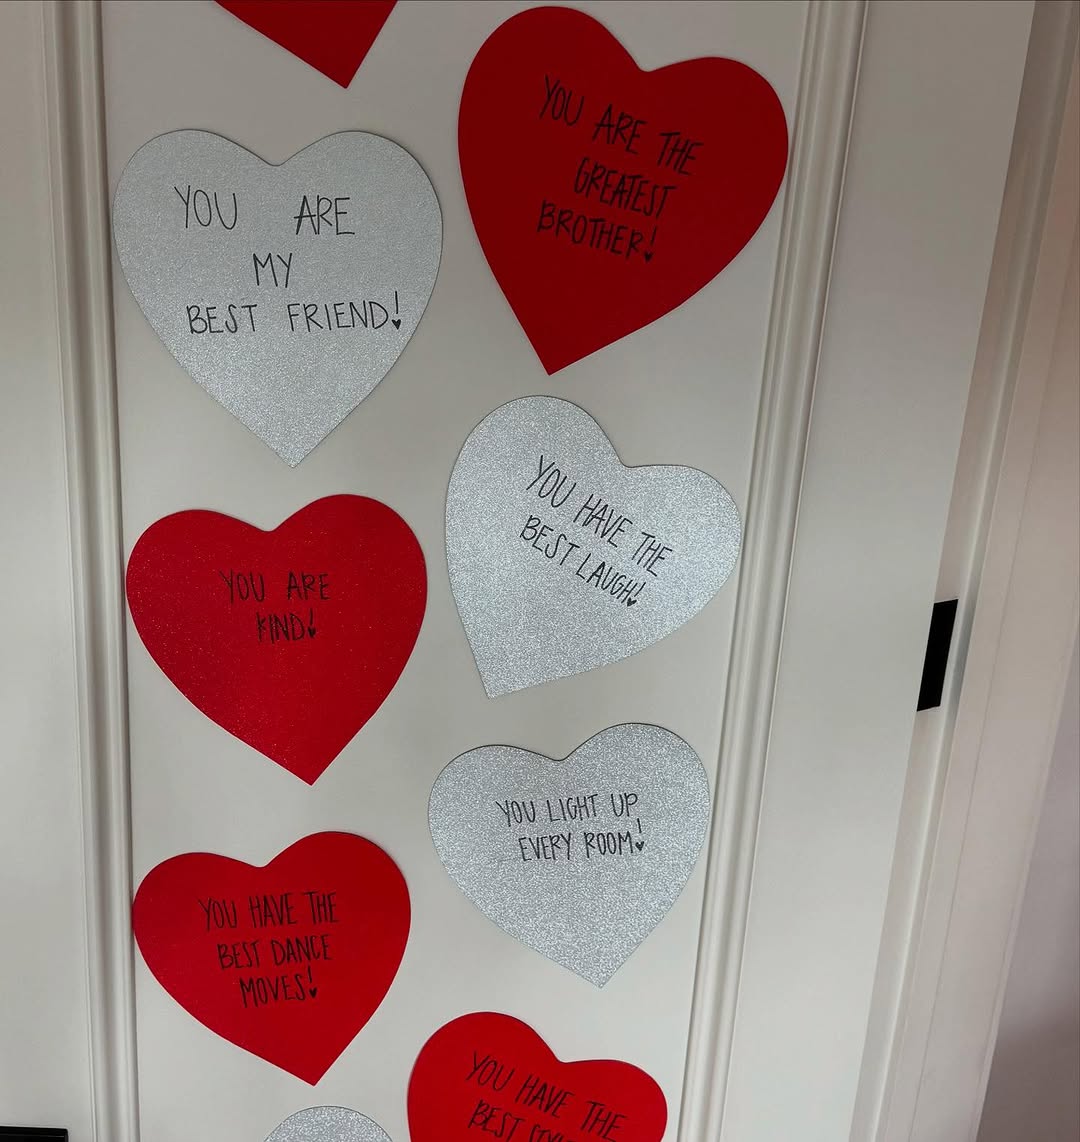 YOU ARE THE
GREATEST
BROTHER!
YOU ARE
MY
BEST FRIEND!
YOU HAVE THE
BEST LAUGH!
YOU ARE
KIND!
YOU LIGHT UP
EVERY ROOM!
YOU HAVE THE
BEST DANCE
MOVES!
YOU HAVE THE
BEST